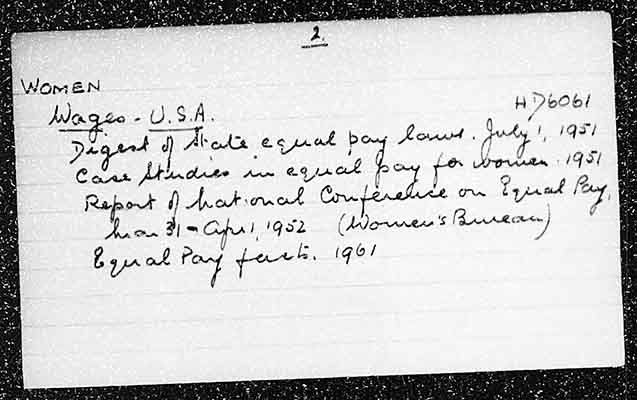 2.
WOMEN
Wages - U.S.A. HD6061
Digest of State equal pay laws. July 1, 1951
Case Studies in equal pay for women. 1951
Report of National Conference on Equal Pay,
Mar 31 - Apr 1, 1952 (Women's Bureau)
Equal Pay facts. 1961